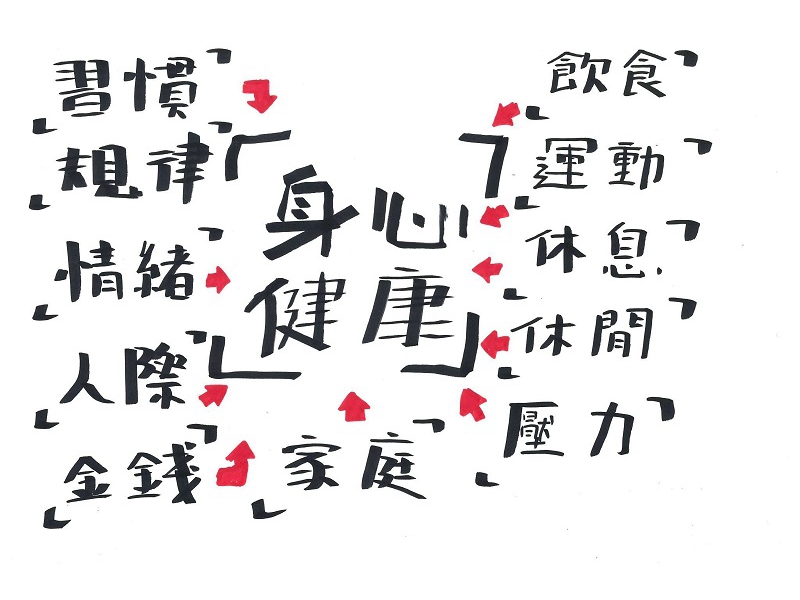 習慣
規律
情緒
人際
金錢
身心
健康
家庭
飲食
運動
休息
休閒
壓力